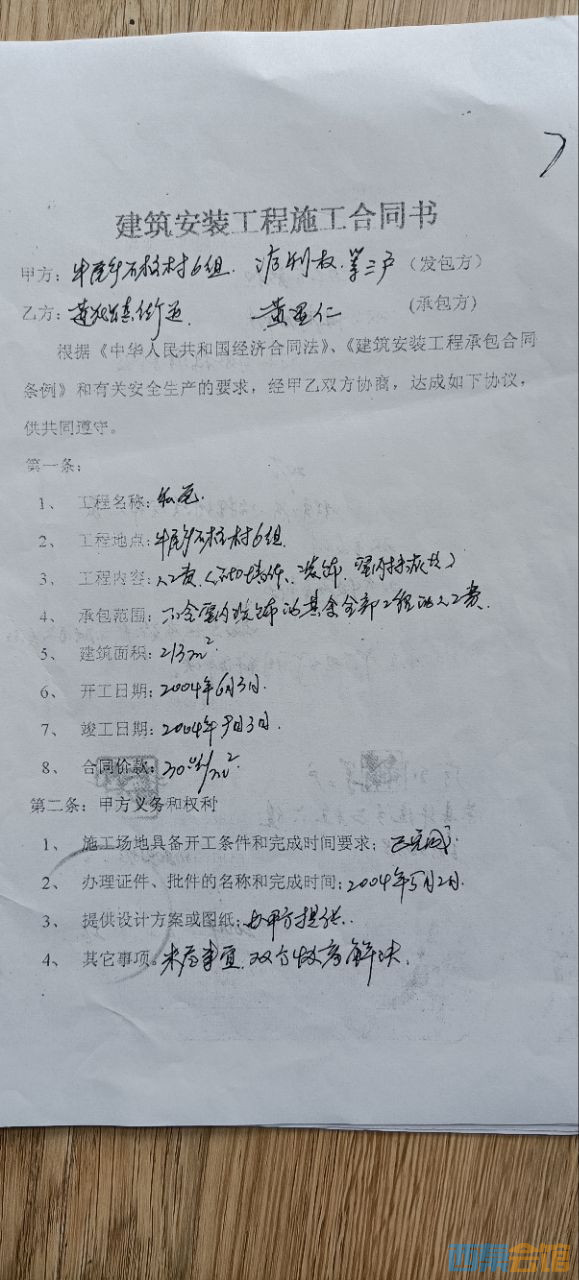 建筑安装工程施工合同书
甲方：石柱村6组 利权 等三户（发包方）
乙方：街道 黄 仁（承包方）
根据《中华人民共和国经济合同法》、《建筑安装工程承包合同
条例》和有关安全生产的要求，经甲乙双方协商，达成如下协议，
供共同遵守。
第一条：
1、 工程名称：私宅
2、 工程地点：石柱村6组
3、 工程内容：人工费
4、 承包范围：不含室内装饰的其余全部工程的人工费
5、 建筑面积：213m²
6、 开工日期：2004年6月3日
7、 竣工日期：2004年9月3日
8、 合同价款：/m²
第二条：甲方义务和权利
1、 施工场地具备开工条件和完成时间要求：已完成
2、 办理证件、批件的名称和完成时间：2004年5月2日
3、 提供设计方案或图纸：由甲方提供
4、 其它事项。未尽事宜 双方协商解决
西祠会馆